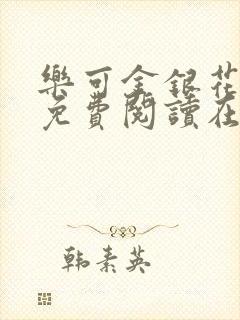 樂可金銀花
免費閱讀在
韩素英